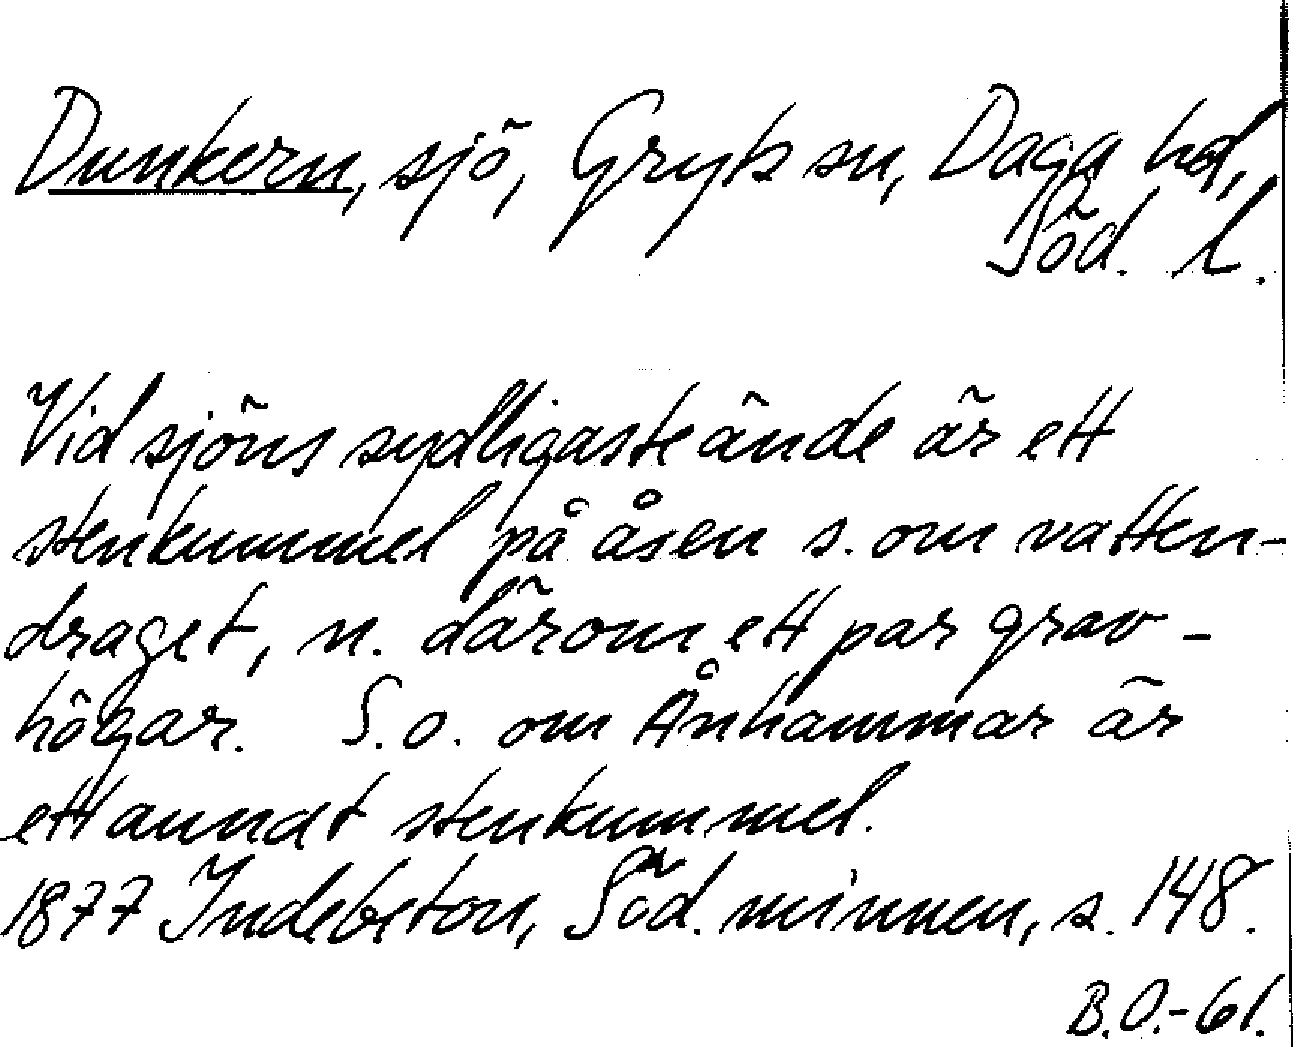 Dunkern, sjö, Gryts sn, Daga hd,
Söd. l.
Vid sjöns sydligaste ände är ett
stenkummel på åsen s. om vatten-
draget, n. därom ett par grav-
högar. S.o. om Ånhammar är
ett annat stenkummel.
1877 Indebetou, Söd. minnen, s. 148.
B.O.-61.